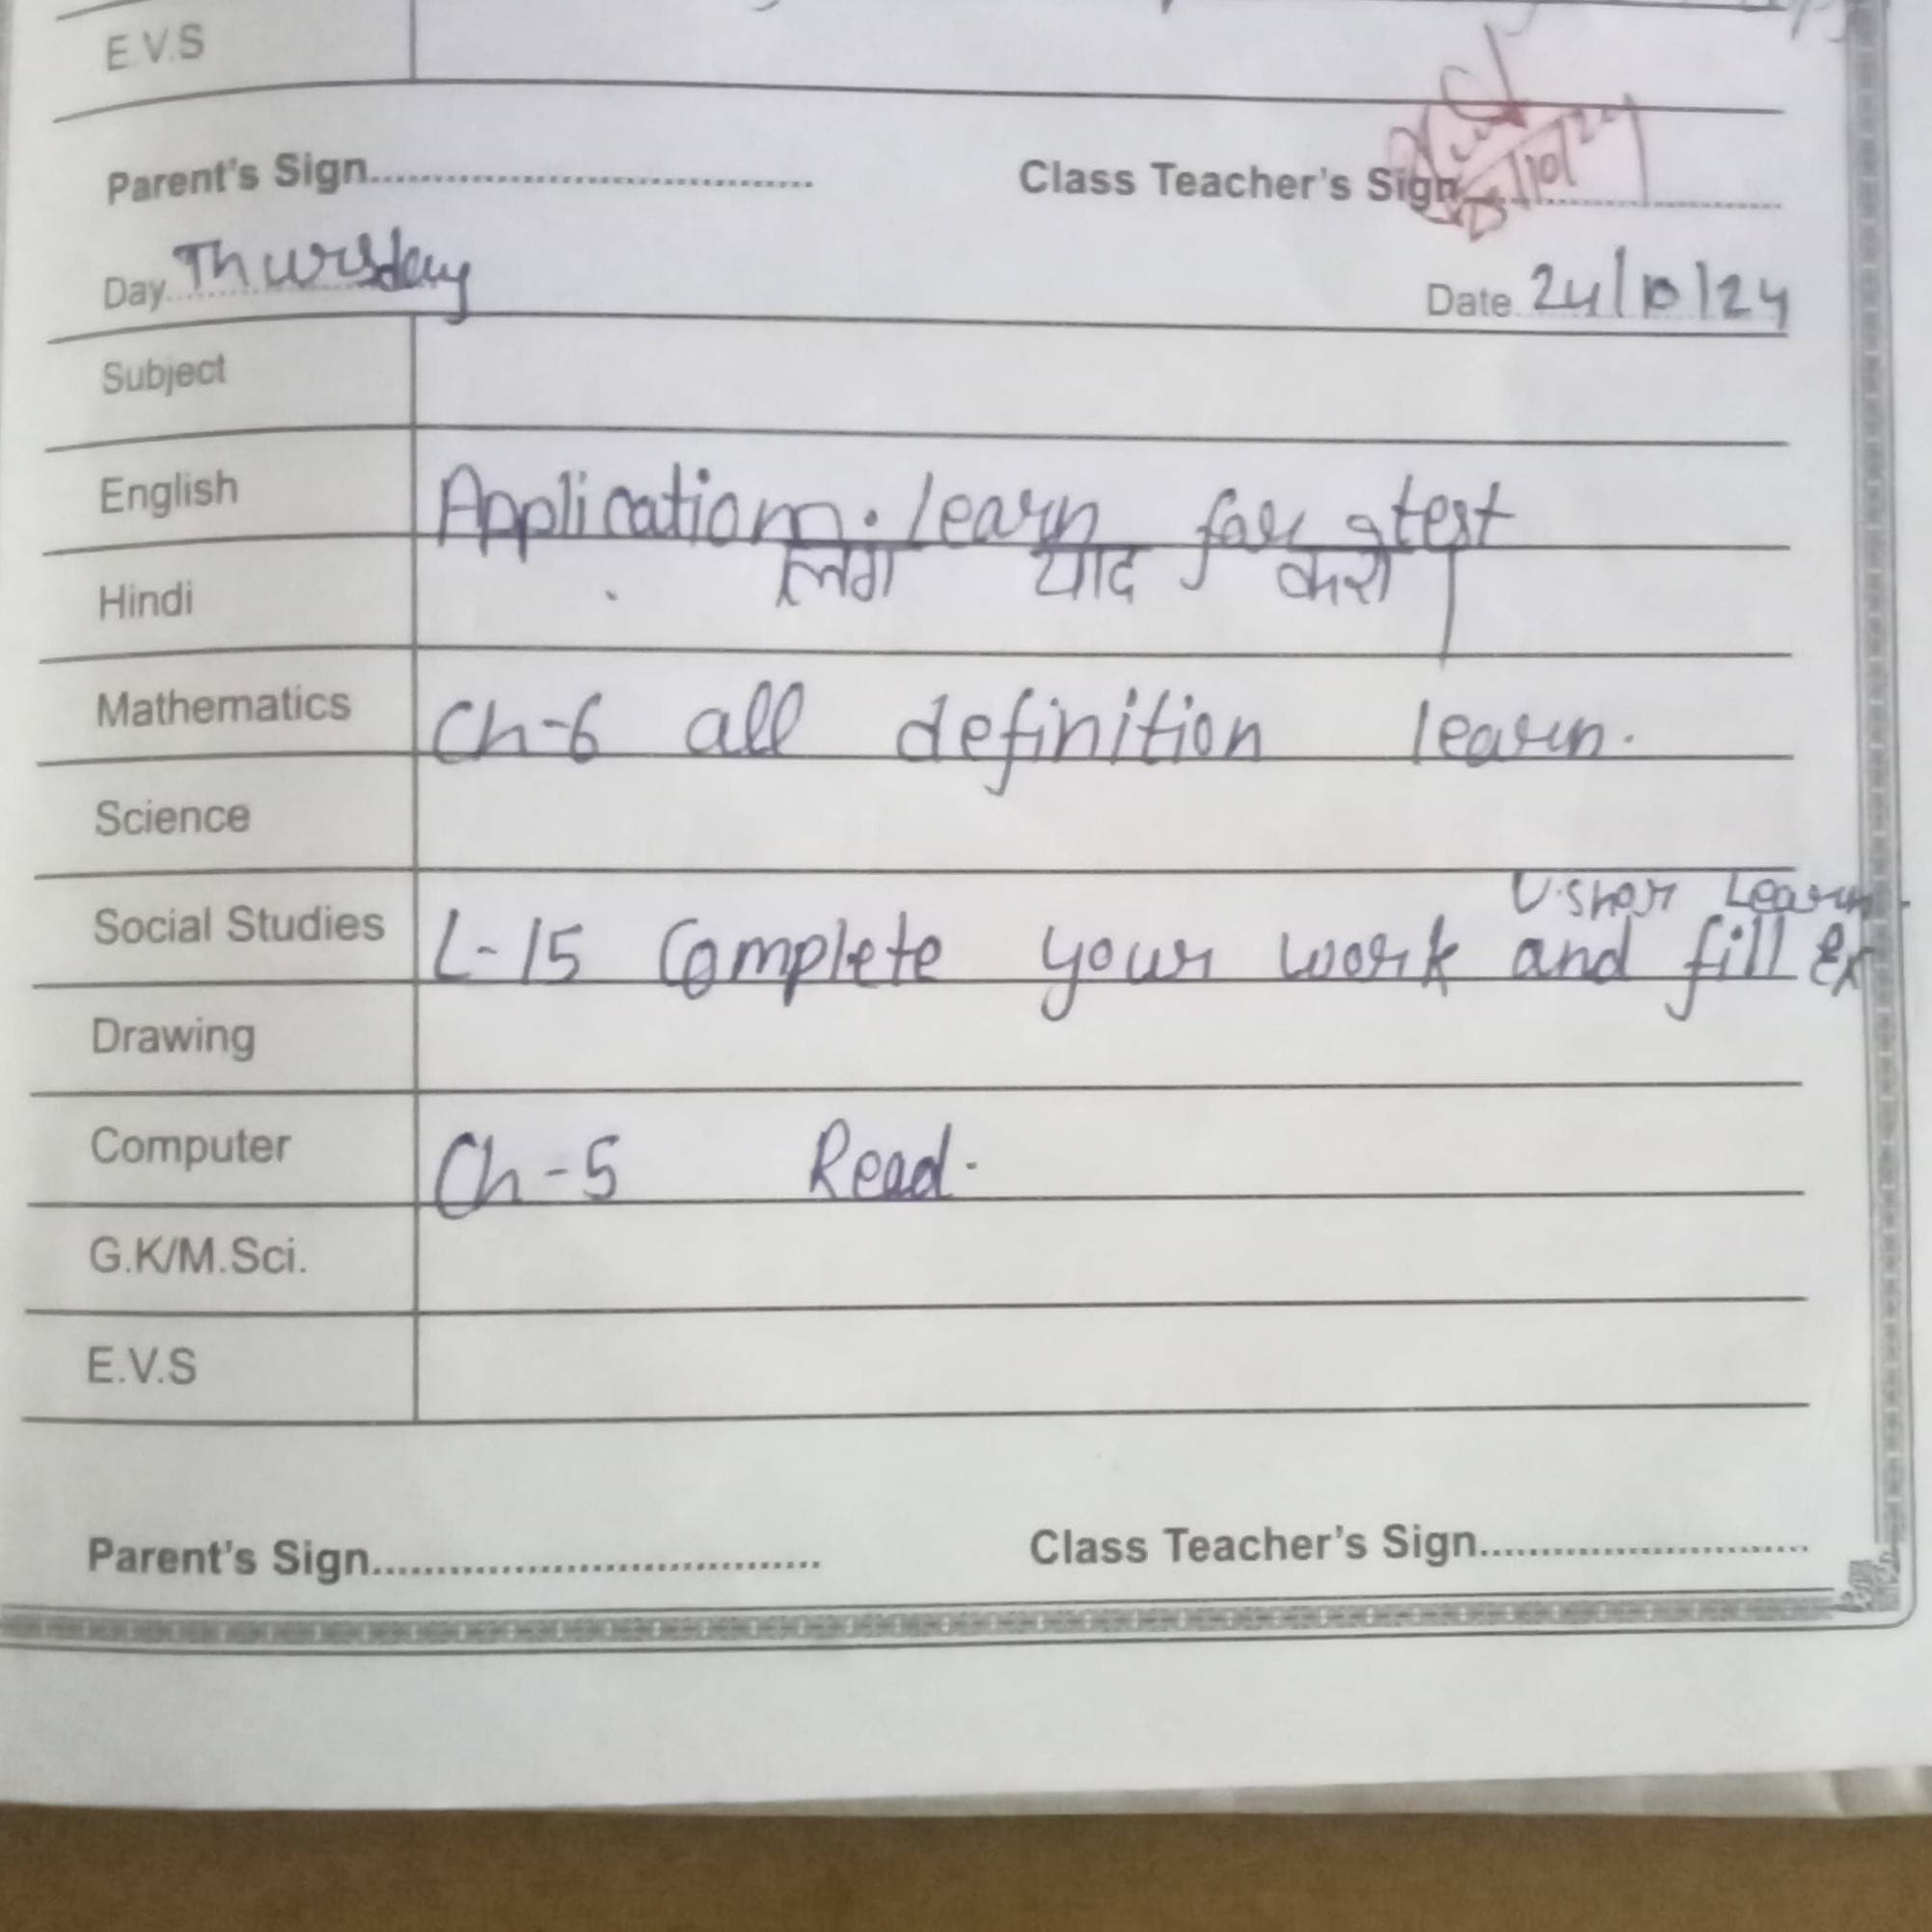 E.V.S
Parent's Sign.......................................... Class Teacher's Sign..........................
Day Thursday Date 24/10/24
Subject
English Application. learn for a test
Hindi लिंग याद करो।
Mathematics Ch-6 all definition learn.
Science
V.short Learn.
Social Studies L-15 Complete your work and fill Ex
Drawing
Computer Ch-5 Read.
G.K/M.Sci.
E.V.S
Parent's Sign.......................................... Class Teacher's Sign..........................